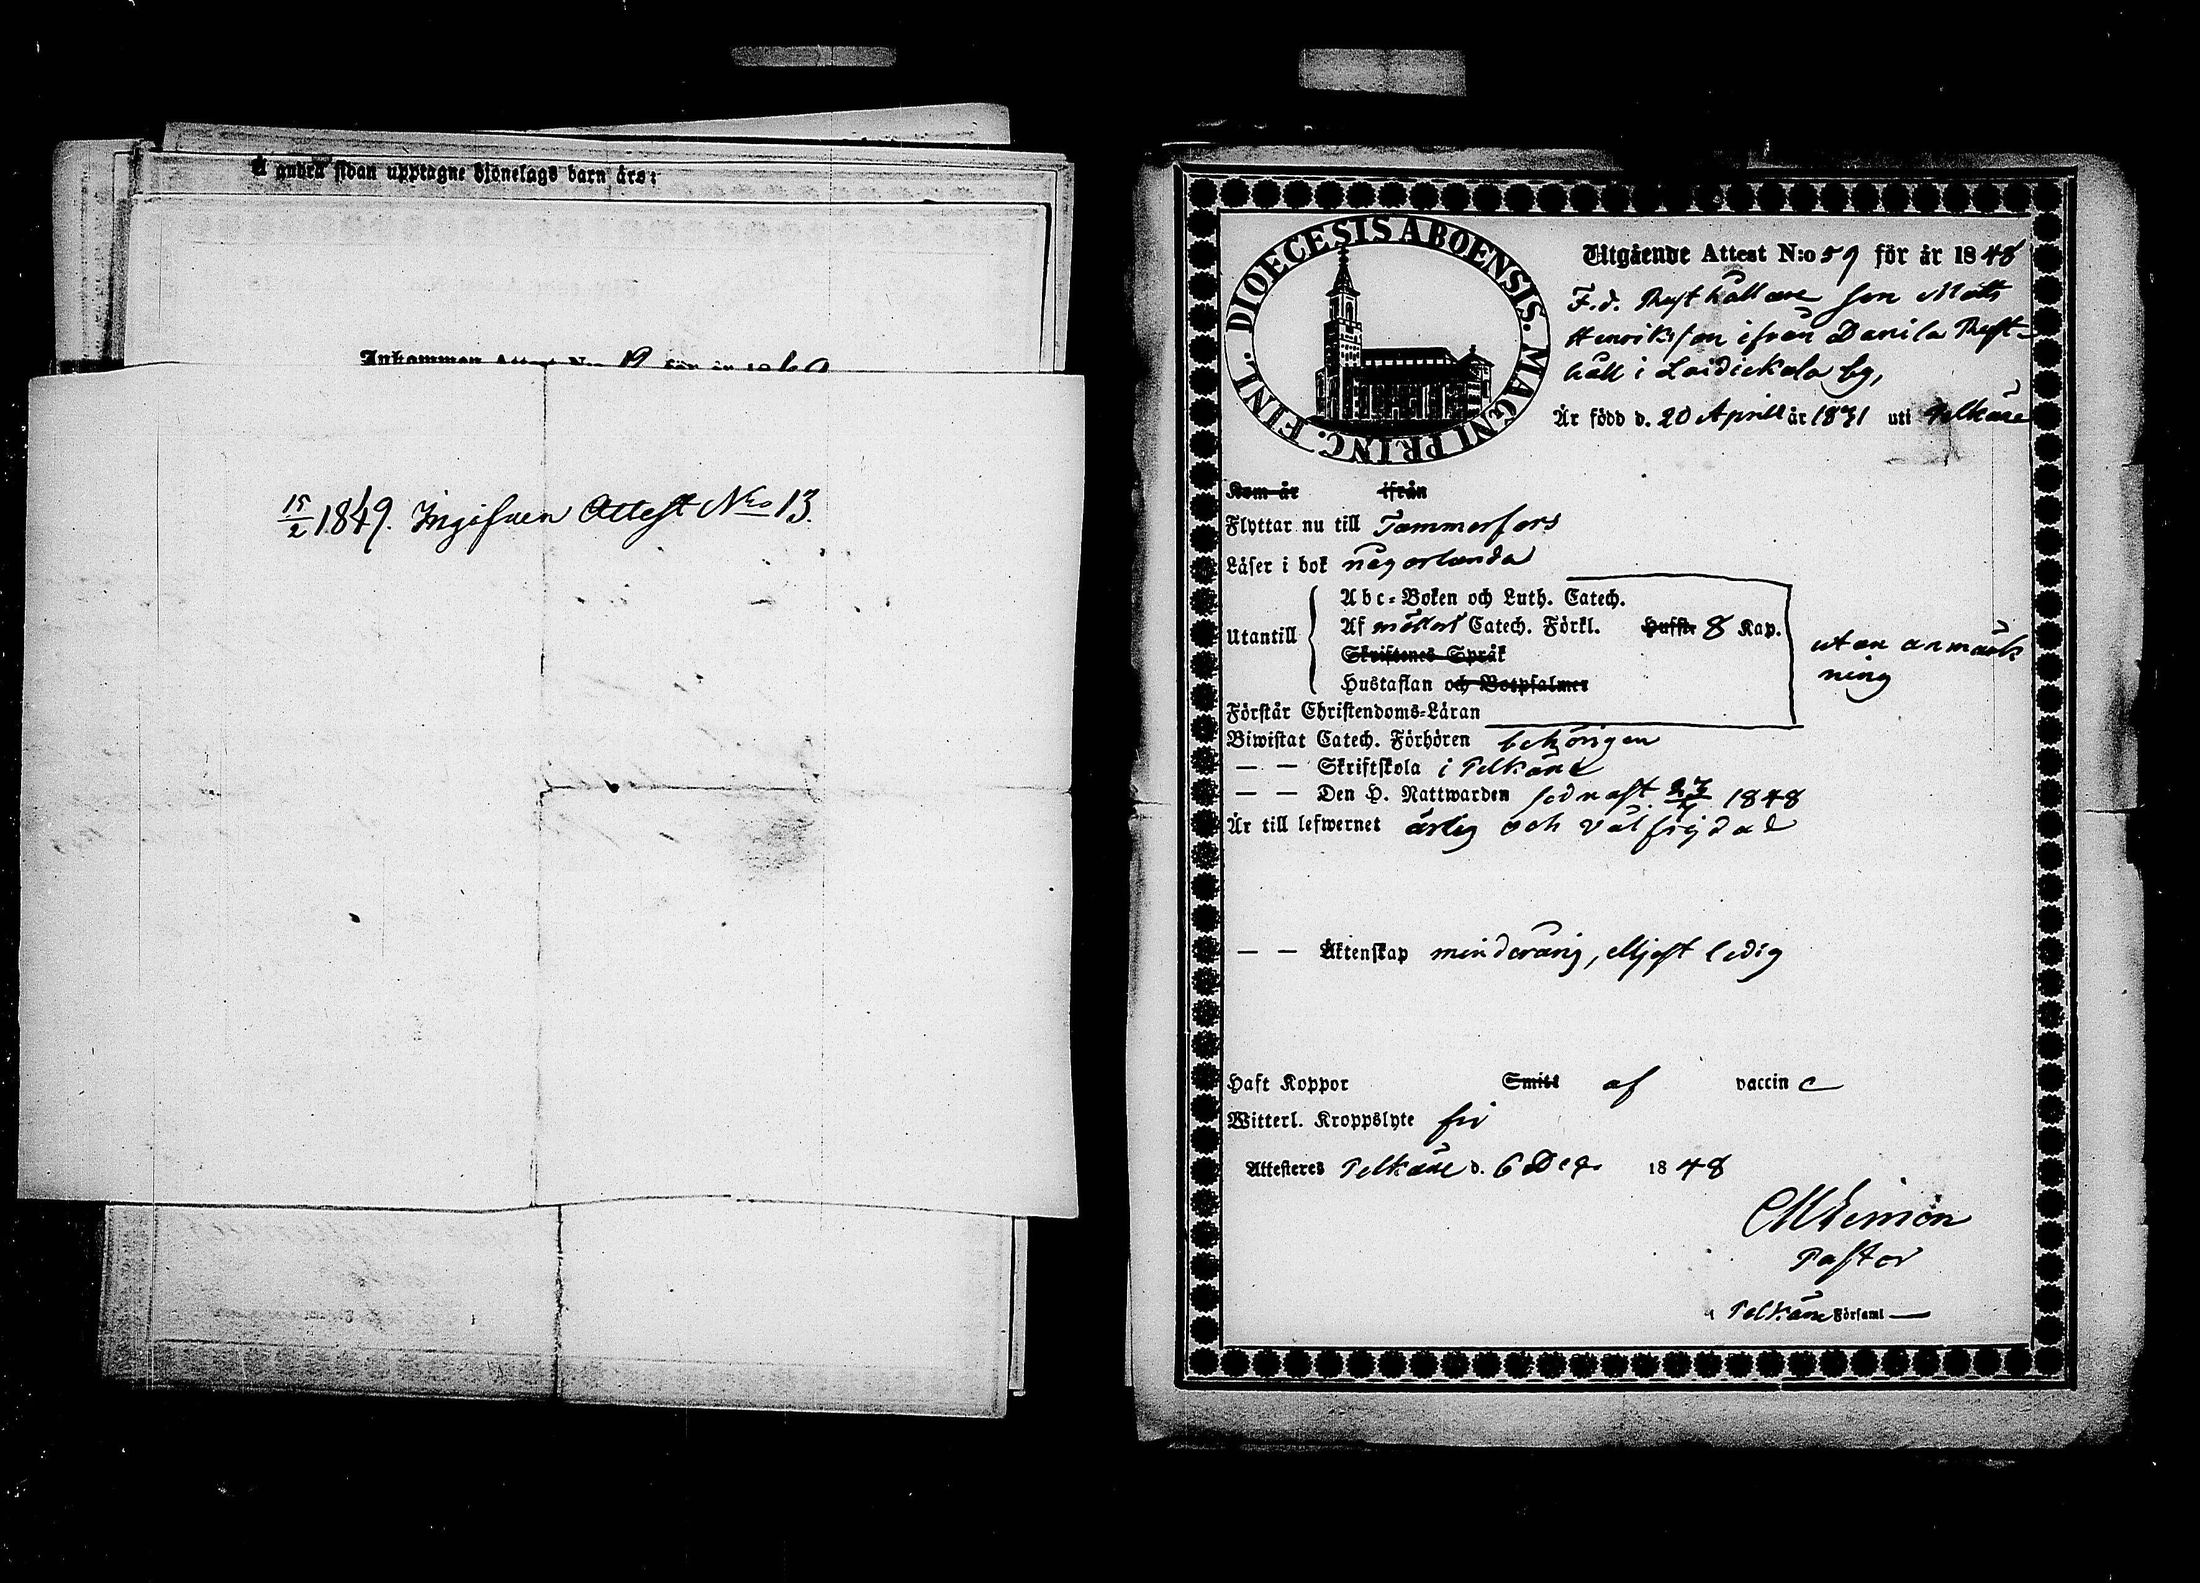 Å andra sidan upptagne Hjonelags barn äro:
Inkommen Attest N:o 12 för år 18
15/2 1849. Ingifven Attest N:ro 13.
DIOECESIS ABOENSIS. MAGNI PRINC. FINL.
Utgående Attest N:o 59 för år 1848
F.d. Rusthållare son Matts
Henriksson ifrån Danila Rust-
håll i Laidickala by,
Är född d. 20 April år 1831 uti Pelkäne
Kom år ifrån
Flyttar nu till Tammerfors
Läser i bok någorlunda
Utantill
Abc-Boken och Luth. Catech.
Af Catech. Förkl. Hufst: 8 Kap.
Skriftenes Språk
Hustaflan och Botpsalmer
utan anmärk
ning
Förstår Christendoms-Läran
Biwistat Catech. Förhören behörigen
— — Skriftskola i Pelkäne
— — Den H. Nattwarden sednast 1848
Är till lefwernet ärlig och välfrejdad
— — Äktenskap minderårig, eljest ledig
Haft Koppor Smitt af vaccin e
Witterl. Kroppslyte fri
Attesteres Pelkäne d. 6 Dec. 1848
Pastor
i Pelkäne Församl